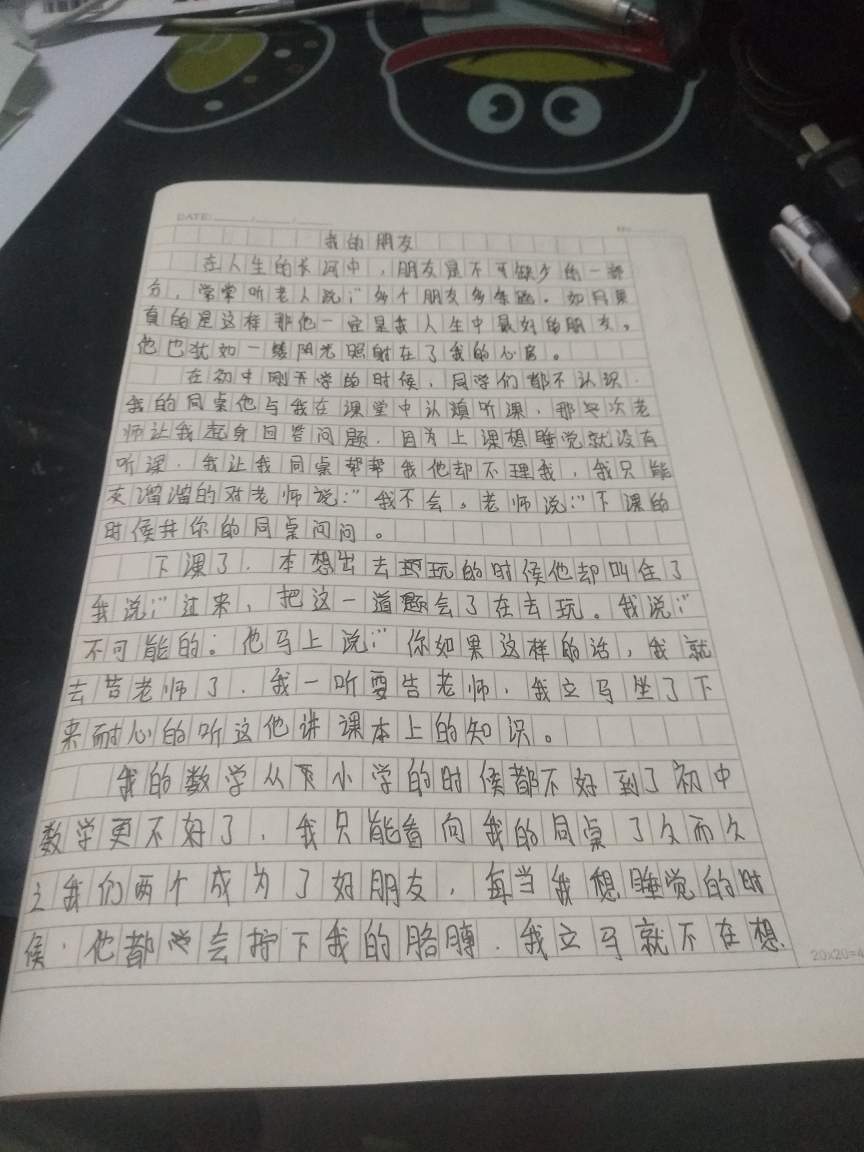 DATE:
我的朋友
在人生的长河中，朋友是不可缺少的一部
分，常常听老人说：“多个朋友多条路。如果
真的是这样那他一定是我人生中最好的朋友，
他也犹如一缕阳光照射在了我的心房。
在初中刚开学的时候，同学们都不认识.
我的同桌他与我在课堂中认真听课，那是次老
师让我起身回答问题，因为上课想睡觉就没有
听课．我让我同桌帮帮我他却不理我，我只能
灰溜溜的对老师说：“我不会。老师说：“下课的
时候并你的同桌问问。
下课了．本想出去玩的时候他却叫住了
我说：“过来，把这一道题会了在去玩。我说：“
不可能的：他马上说：“你如果这样的话，我就
去告老师了．我一听要告老师，我立马坐了下
来耐心的听这他讲课本上的知识。
我的数学从小学的时候都不好到了初中
数学更不好了．我只能看向我的同桌了久而久
之我们两个成为了好朋友，每当我想睡觉的时
候．他都会拧下我的胳膊．我立马就不在想．
20×20=4